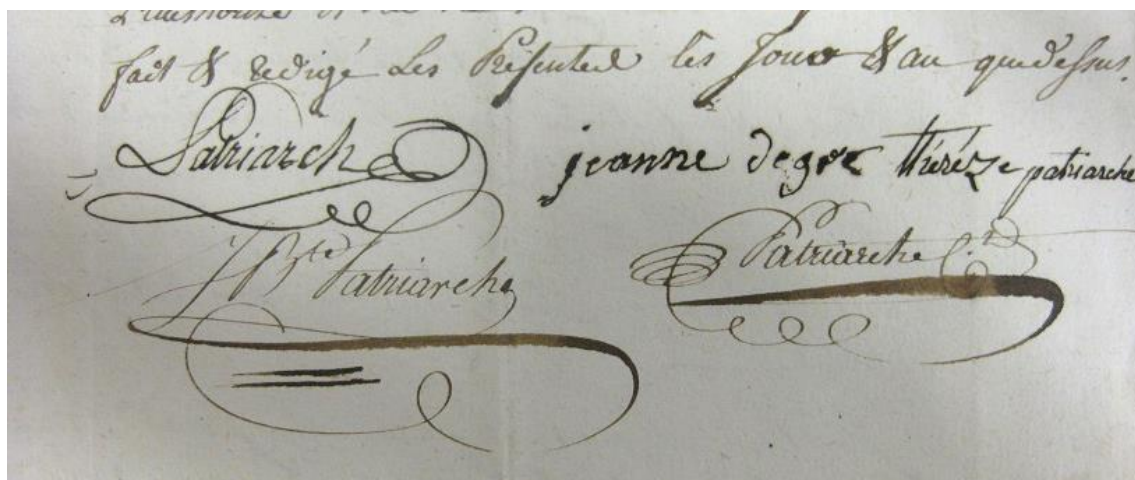 fait & redigé Les Présentes les Jour & an que dessus.
Patriarche
jeanne degre thérèze patriarche
JBte Patriarche
Patriarche